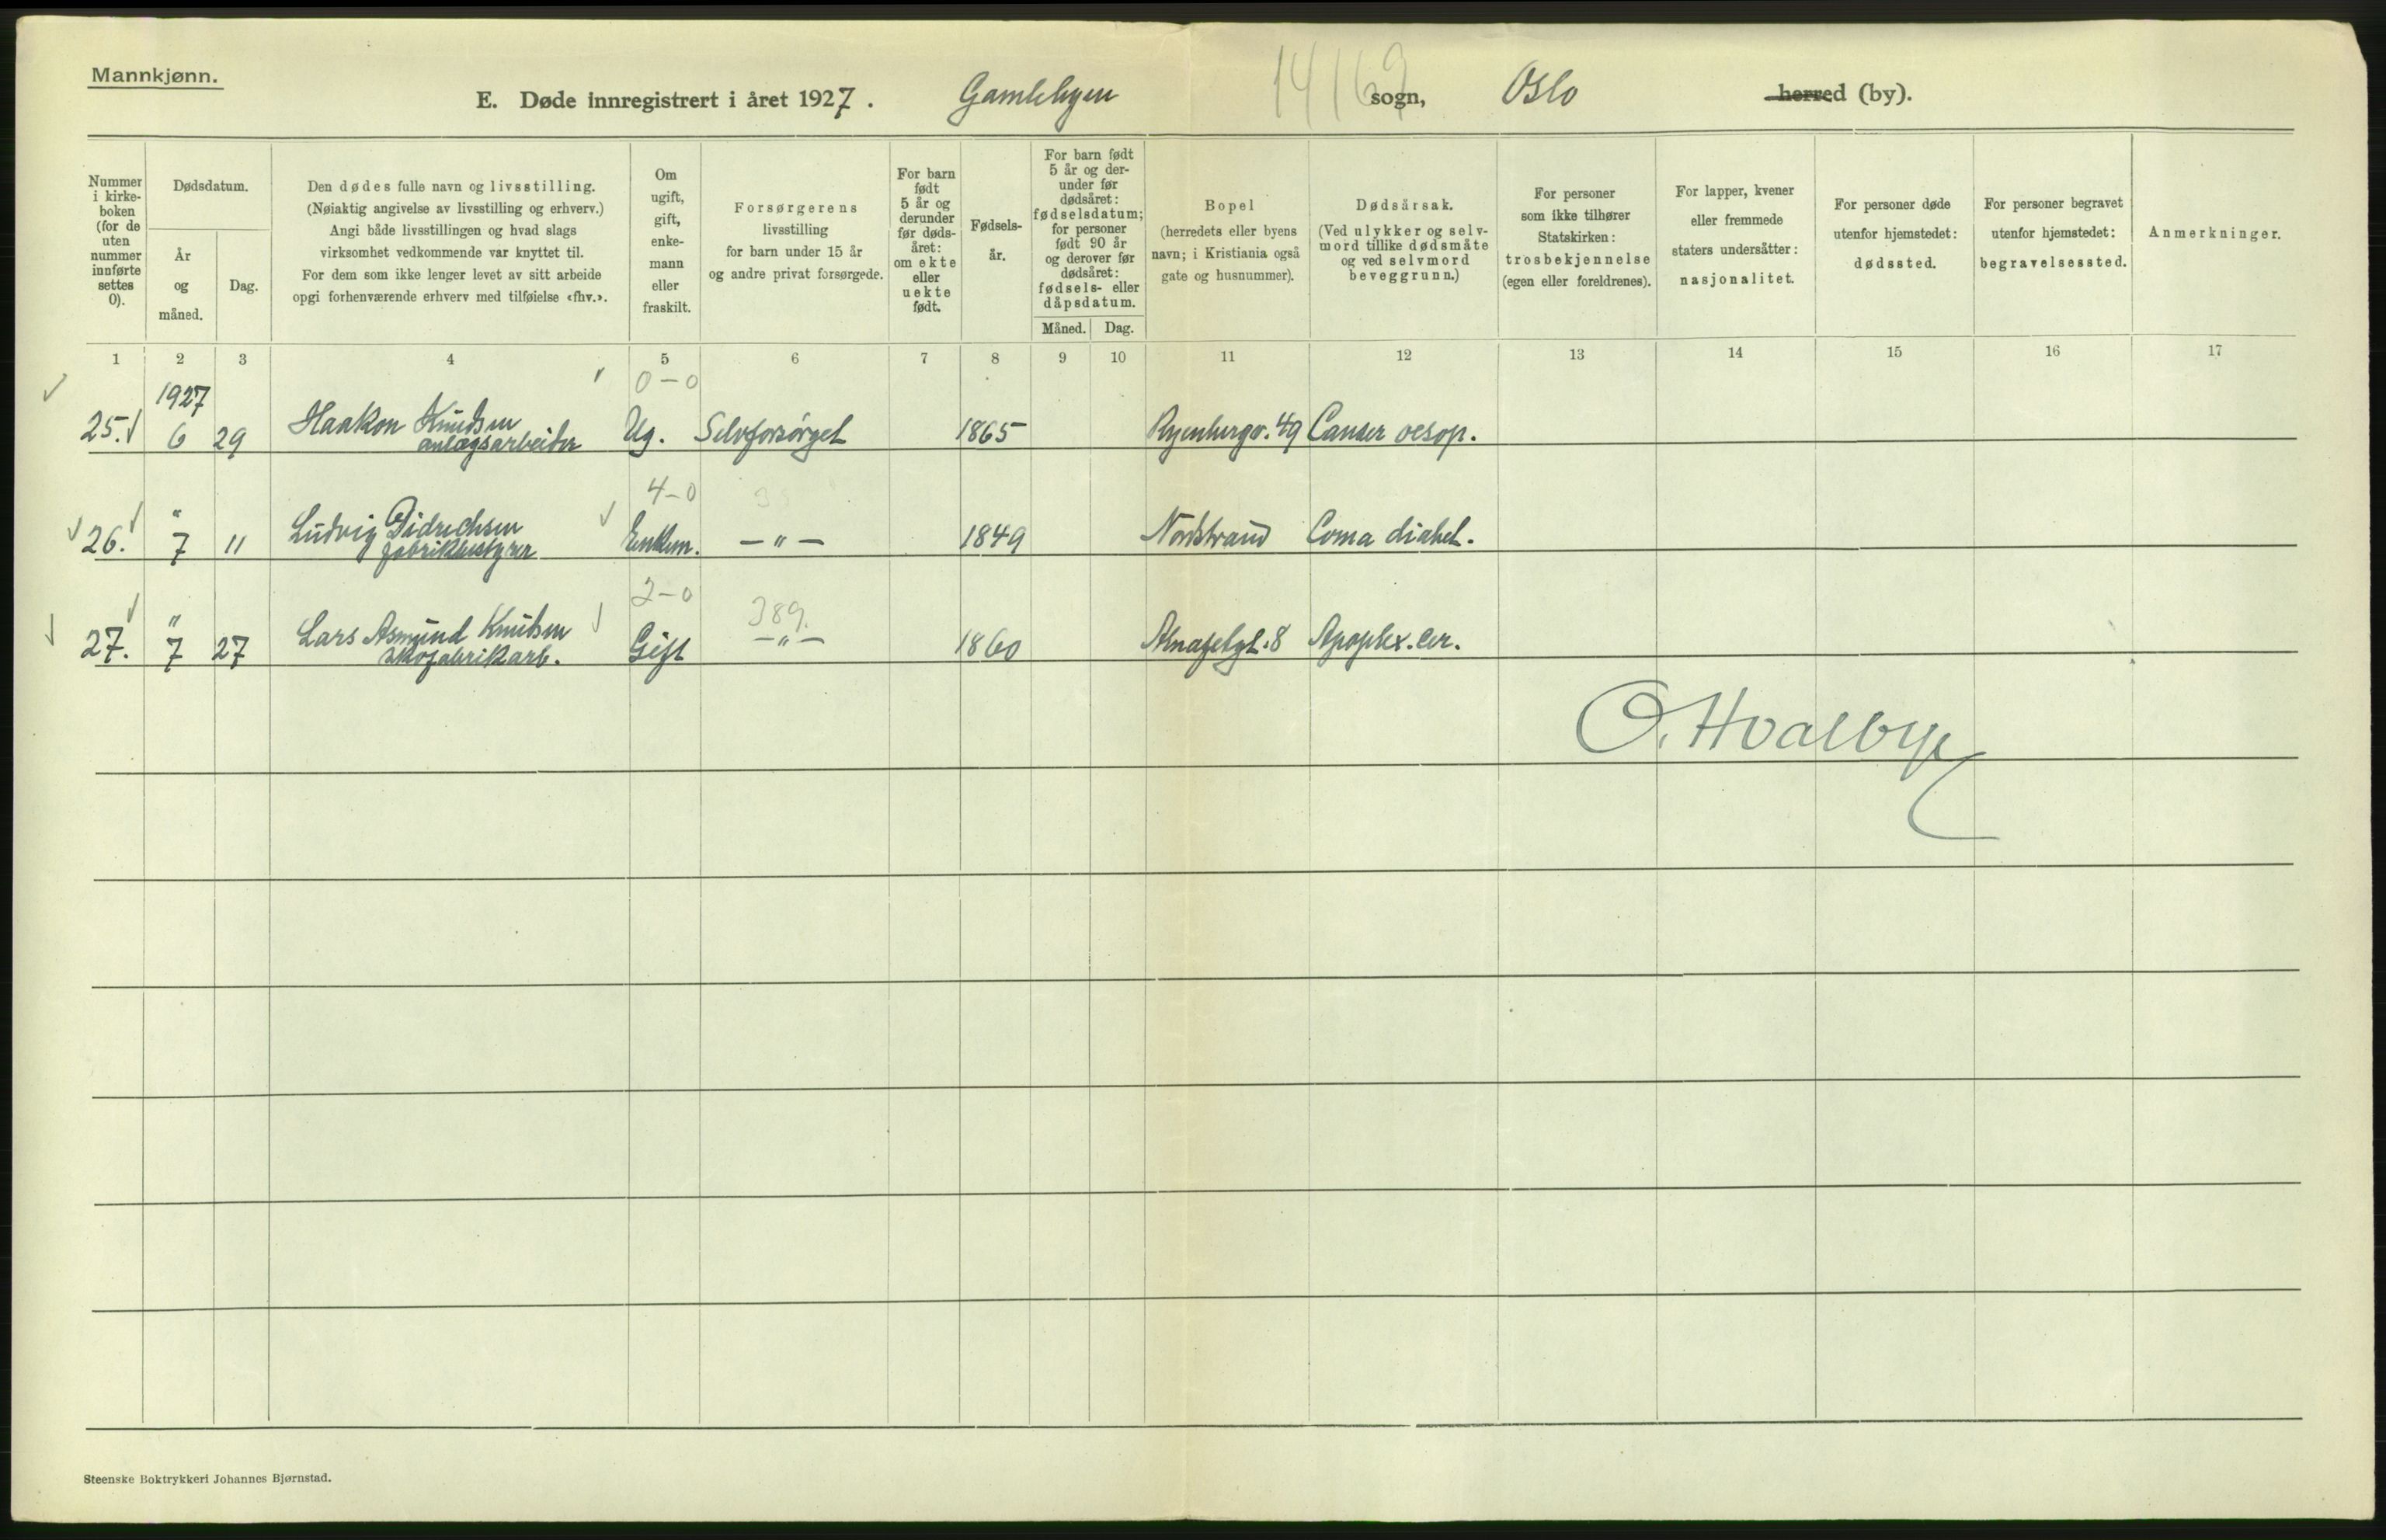 Mannkjønn.
E. Døde innregistrert i året 1927. Gamlebyen sogn, Oslo herred (by).
14169
Nummer i kirke-boken (for de uten nummer innførte settes 0).
Dødsdatum.
År og måned.
Dag.
Den dødes fulle navn og livsstilling.
(Nøiaktig angivelse av livsstilling og erhverv.)
Angi både livsstillingen og hvad slags
virksomhet vedkommende var knyttet til.
For dem som ikke lenger levet av sitt arbeide
opgi forhenværende erhverv med tilføielse «fhv.».
Om ugift, gift, enke-mann eller fraskilt.
Forsørgerens
livsstilling
for barn under 15 år
og andre privat forsørgede.
For barn født 5 år og derunder før døds-året: om ekte eller uekte født.
Fødsels-år.
For barn født 5 år og der-under før dødsåret: fødselsdatum; for personer født 90 år og derover før dødsåret: fødsels- eller dåpsdatum.
Måned. Dag.
Bopel
(herredets eller byens
navn; i Kristiania også
gate og husnummer).
Dødsårsak.
(Ved ulykker og selv-
mord tillike dødsmåte
og ved selvmord
beveggrunn.)
For personer
som ikke tilhører
Statskirken:
trosbekjennelse
(egen eller foreldrenes).
For lapper, kvener
eller fremmede
staters undersåtter:
nasjonalitet.
For personer døde
utenfor hjemstedet:
dødssted.
For personer begravet
utenfor hjemstedet:
begravelsessted.
Anmerkninger.
1 2 3 4 5 6 7 8 9 10 11 12 13 14 15 16 17
1927 0-0
25. 6 29 Haakon Knudsen anlægsarbeider Ug. Selvforsørget 1865 Ryenbergv. 49 Canser oesop.
4-0
26. " 7 11 Ludvig Didrichsen fabrikbestyrer Enkem. —"— 1849 Nordstrand Coma diabet.
2-0 389.
27. " 7 27 Lars Asmund Knutsen skofabrikarb. Gift —"— 1860 Almafetgt. 8 Apoplex. cer.
O. Hvalbye
Steenske Boktrykkeri Johannes Bjørnstad.